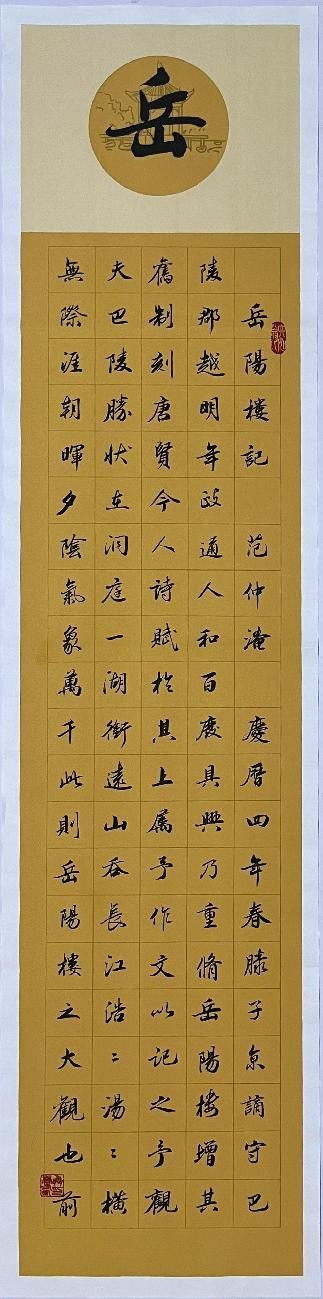 岳
岳陽樓記 范仲淹 慶曆四年春滕子京謫守巴
陵郡越明年政通人和百廢具興乃重脩岳陽樓增其
舊制刻唐賢今人詩賦於其上屬予作文以記之予觀
夫巴陵勝狀在洞庭一湖銜遠山吞長江浩〻湯〻橫
無際涯朝暉夕陰氣象萬千此則岳陽樓之大觀也前